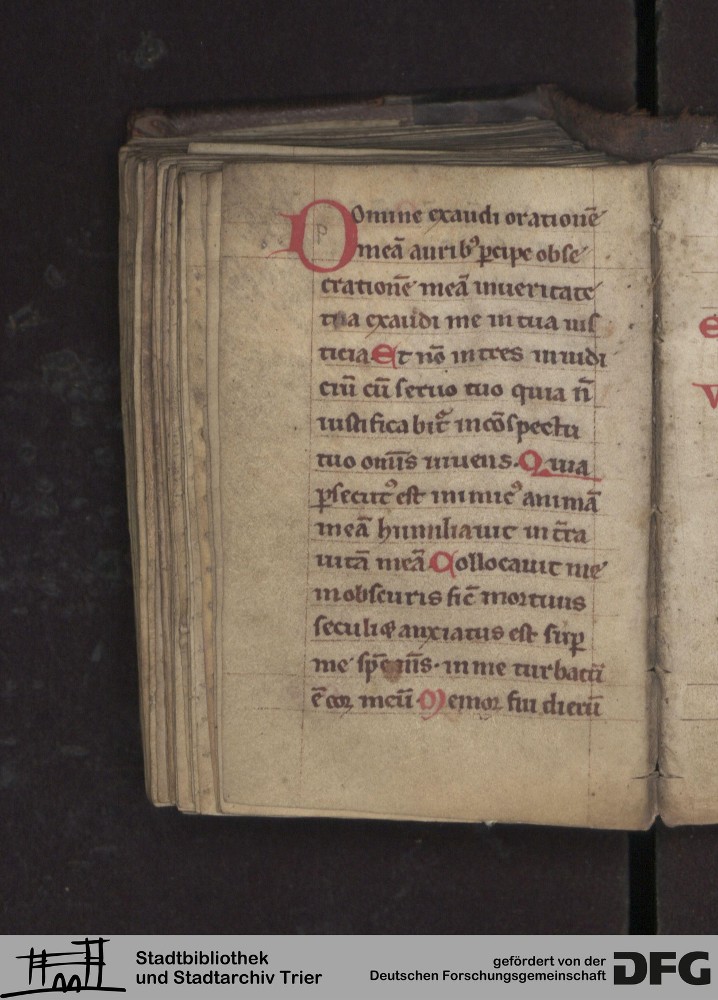 Domine exaudi orationē
meā aurib᷒ ꝑcipe obse
crationē meā inueritate
tua exaudi me in tua ius
ticia Et nō intres in iudi
ciū cū seruo tuo quia n̄
iustificabit᷑ in cōspectu
tuo om̄s uiuens. Quia
ꝑsecut᷒ est inimic᷒ animā
meā humiliauit in t̄ra
uitā meā Collocauit me
in obscuris sic̄ mortuus
seculi & anxiatus est suꝑ
me sp̄c m̄s. in me turbatū
ē cor meū Memor fui dierū
Stadtbibliothek
und Stadtarchiv Trier
gefördert von der
Deutschen Forschungsgemeinschaft
DFG